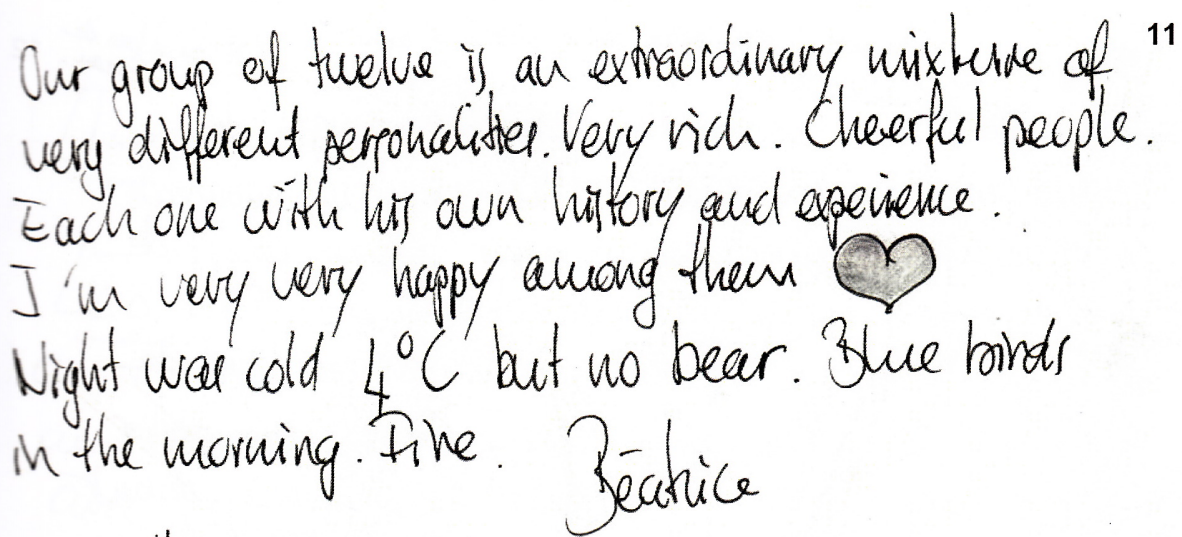 Our group of twelve is an extraordinary mixture of 11
very different personalities. Very rich. Cheerful people.
Each one with his own history and experience.
I'm very very happy among them
Night was cold 4°C but no bear. Blue birds
in the morning. Fine.
Béatrice